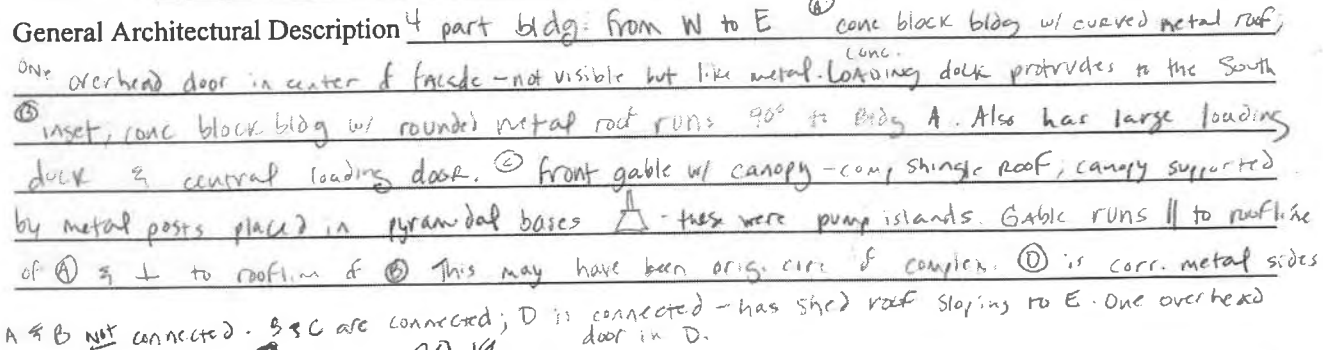 General Architectural Description 4 part bldg: from W to E Ⓐ conc block bldg w/ curved metal roof,
one overhead door in center of facade - not visible but like metal. Conc. Loading dock protrudes to the South
Ⓑ inset, conc block bldg w/ rounded metal roof runs 90° to Bldg A. Also has large loading
dock & central loading door. Ⓒ front gable w/ canopy - comp shingle roof, canopy supported
by metal posts placed in pyramidal bases - these were pump islands. Gable runs || to roofline
of Ⓐ & ⊥ to roofline of Ⓑ This may have been orig. core of complex. Ⓓ is corr. metal sides
A & B NOT connected. B & C are connected; D is connected - has shed roof sloping to E. One overhead
door in D.